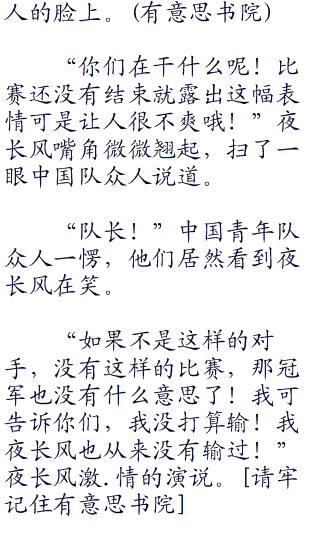 人的脸上。(有意思书院)
“你们在干什么呢！比
赛还没有结束就露出这幅表
情可是让人很不爽哦！”夜
长风嘴角微微翘起，扫了一
眼中国队众人说道。
“队长！”中国青年队
众人一愣，他们居然看到夜
长风在笑。
“如果不是这样的对
手，没有这样的比赛，那冠
军也没有什么意思了！我可
告诉你们，我没打算输！我
夜长风也从来没有输过！”
夜长风激.情的演说。[请牢
记住有意思书院]